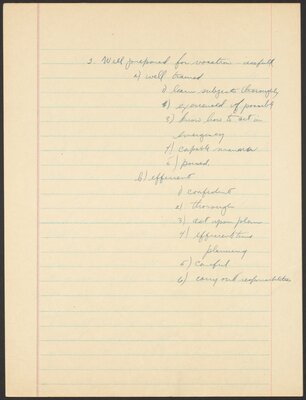 3. Well prepared for vocation -
a) well trained
1) learn subjects thoroughly
2) experienced if possible
3) know how to act in
emergency
4) capable
5) poised
b) efficient
1) confident
2) thorough
3) act upon plan
4) efficient time
planning
5) careful
6) carry out responsibilities